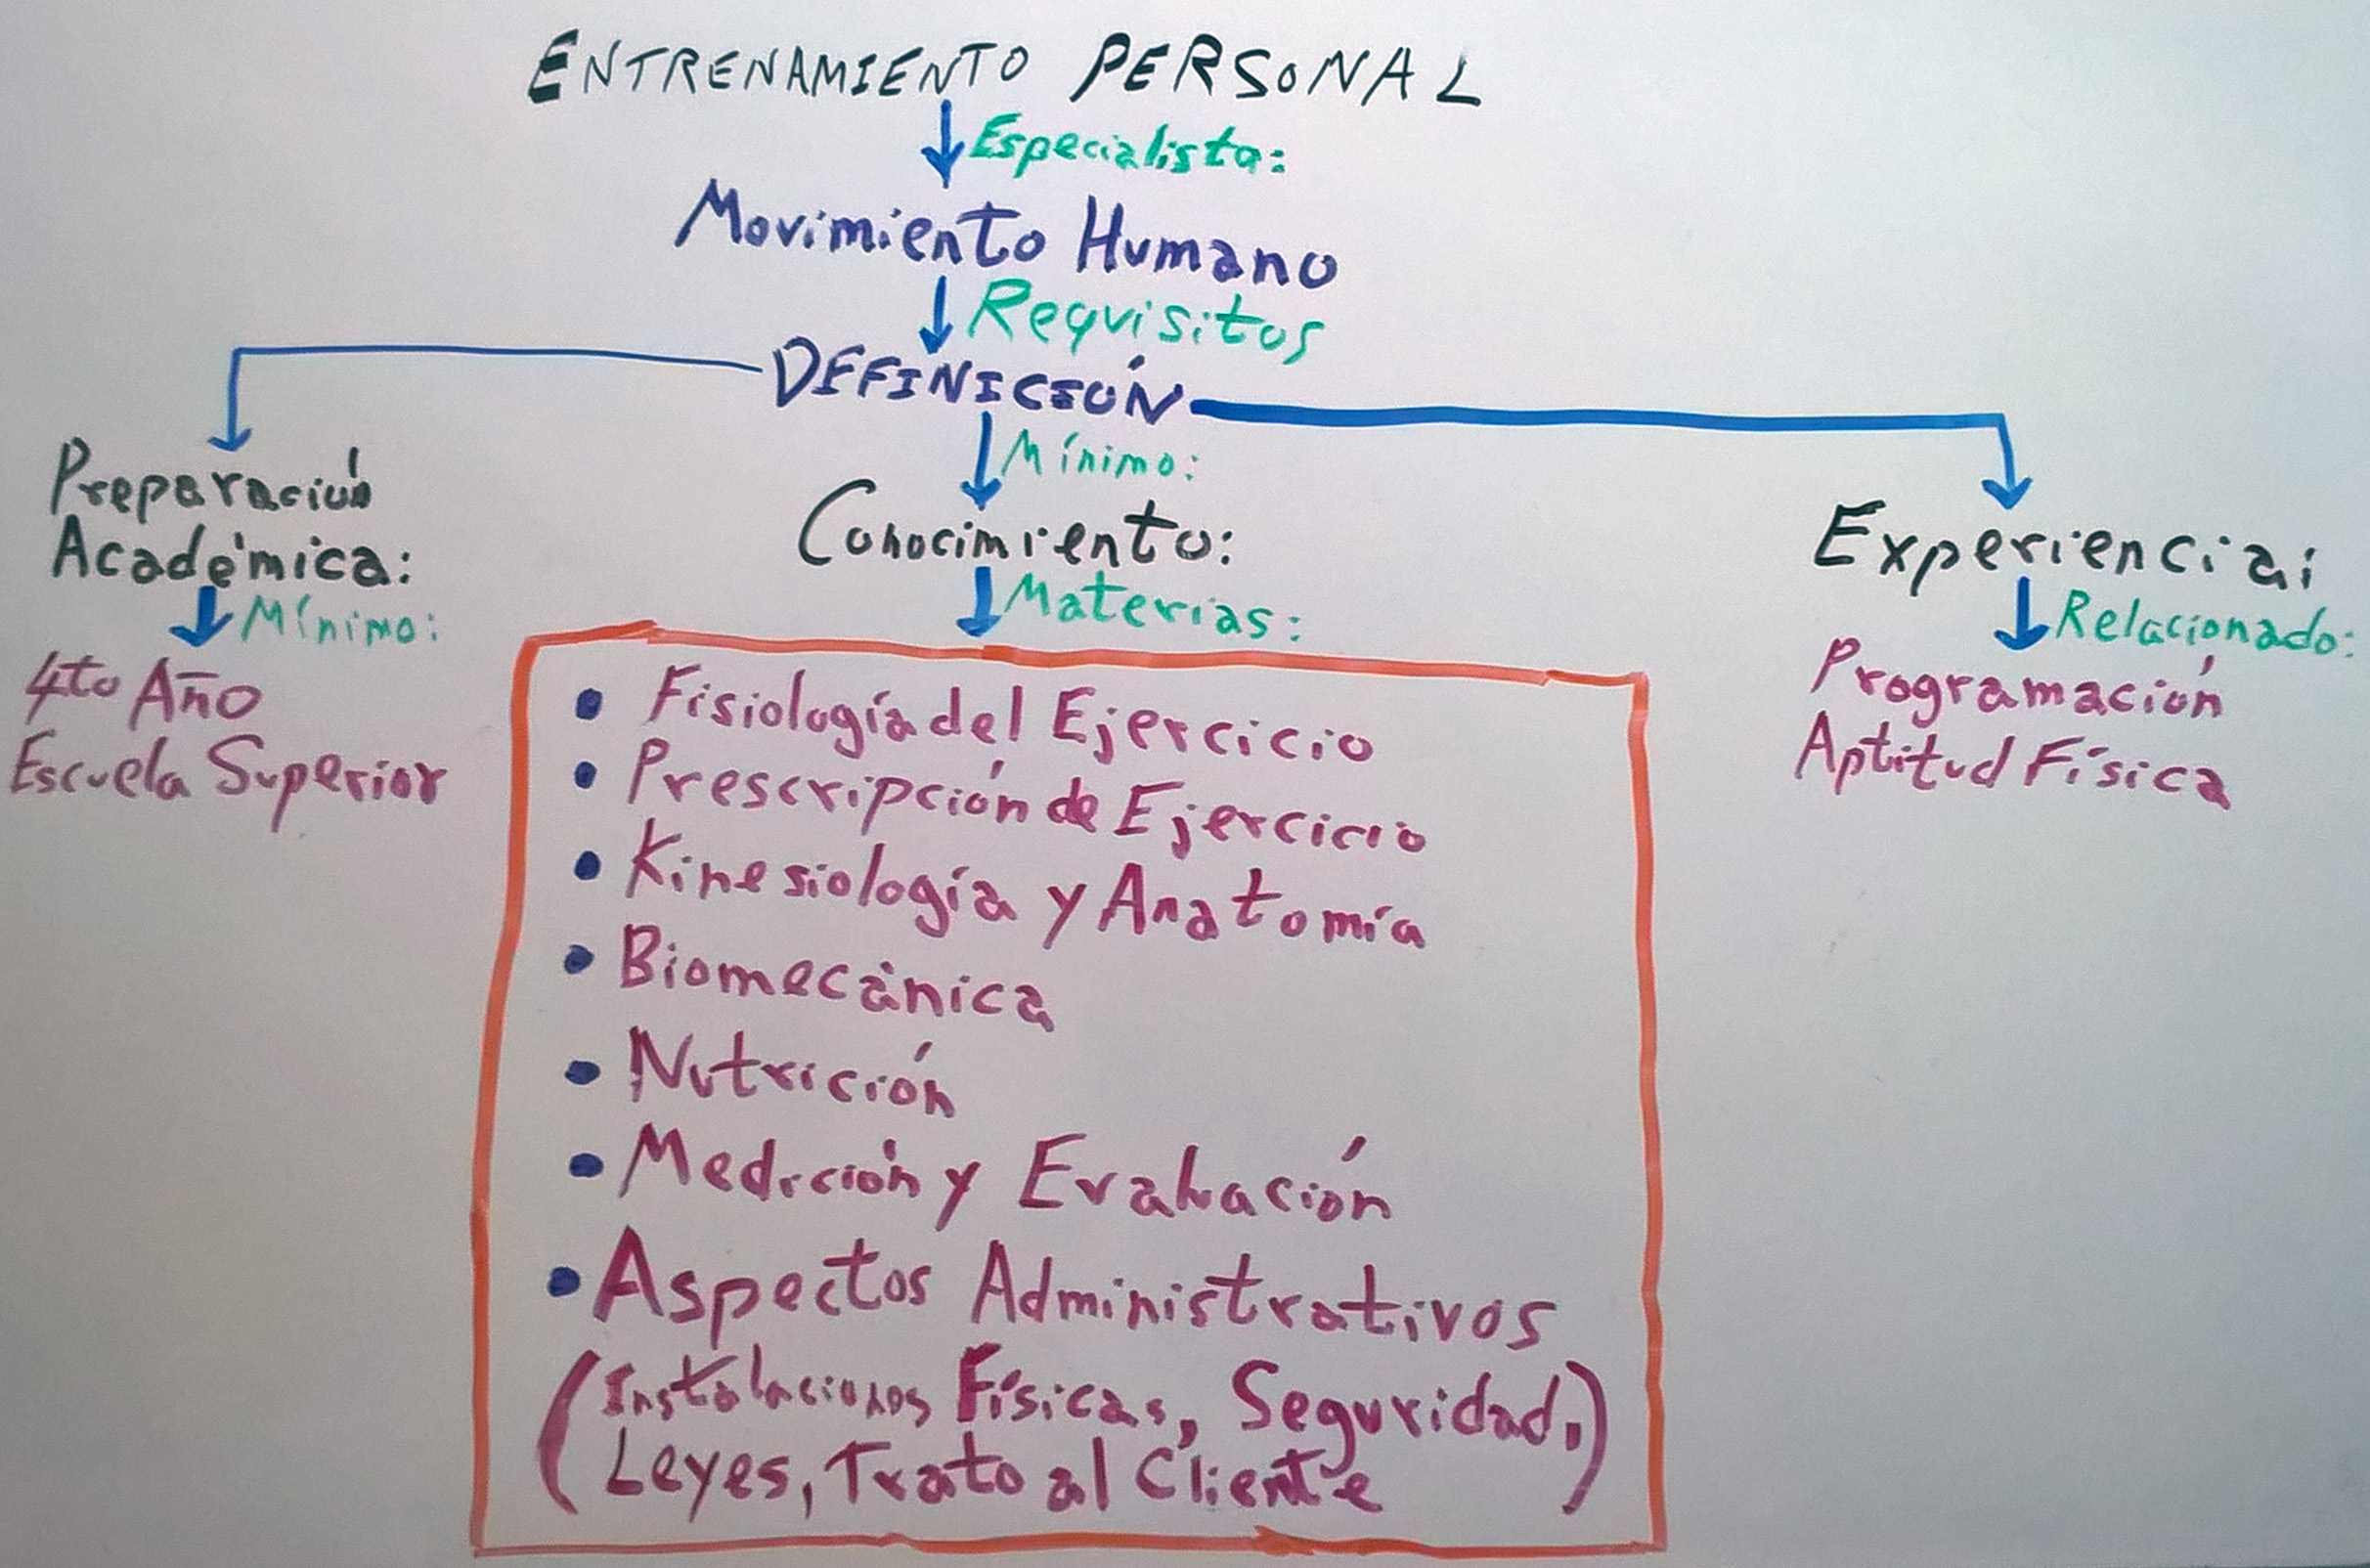 ENTRENAMIENTO PERSONAL
Especialista:
Movimiento Humano
Requisitos
DEFINICIÓN
Mínimo:
Preparación
Académica:
Mínimo:
4to Año
Escuela Superior
Conocimiento:
Materias:
• Fisiología del Ejercicio
• Prescripción de Ejercicio
• Kinesiología y Anatomía
• Biomecánica
• Nutrición
• Medición y Evaluación
• Aspectos Administrativos
(Instalaciones Físicas, Seguridad,)
Leyes, Trato al Cliente
Experiencia:
Relacionado:
Programación
Aptitud Física